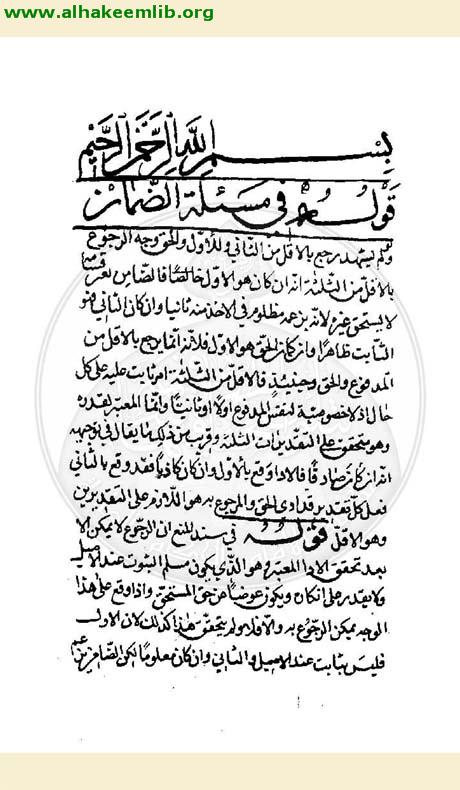 www.alhakeemlib.org
بسم الله الرحمن الرحيم
قوله في مسئلة الضمان
ولم يشهد رجع بالاقل من الثاني والاول والحق وجه الرجوع
بالاقل من الثلثة انه ان كان هو الاول فالضامن
لا يستحق غيره لانه بزعمه مظلوم في الاخذ منه ثانيا وان كان الثاني فهو
الثابت ظاهرا وان كان الحق هو الاول فلانه انما يرجع بالاقل من
المدفوع والحق وحينئذ فالاقل من الثلثة امر ثابت عليه على كل
حال اذ لا خصوصية لنفس المدفوع اولا او ثانيا وانما المعتبر قدره
وهو متحقق على التقديرات الثلثة وقريب من ذلك ما يقال في توجيهه
انه ان كان صادقا فالاداء وقع بالاول وان كان كاذبا فقد وقع بالثاني
فعلى كل تقدير قد ادى الحق والمرجوع به هو اللازم على التقديرين
وهو الاقل قوله في سند المنع ان الرجوع لا يمكن الا
بعد تحقق الاداء المعتبر وهو الذي يكون مسلم الثبوت عند الاصيل
ولا يقدر على انكاره ويكون عوضا عن حق المستحق واذا وقع على هذا
الوجه يمكن الرجوع به والا فلا ولم يتحقق هنا كذلك لان الاول
فليس بثابت عند الاصيل والثاني وان كان معلوما لكن الضامن يزعم